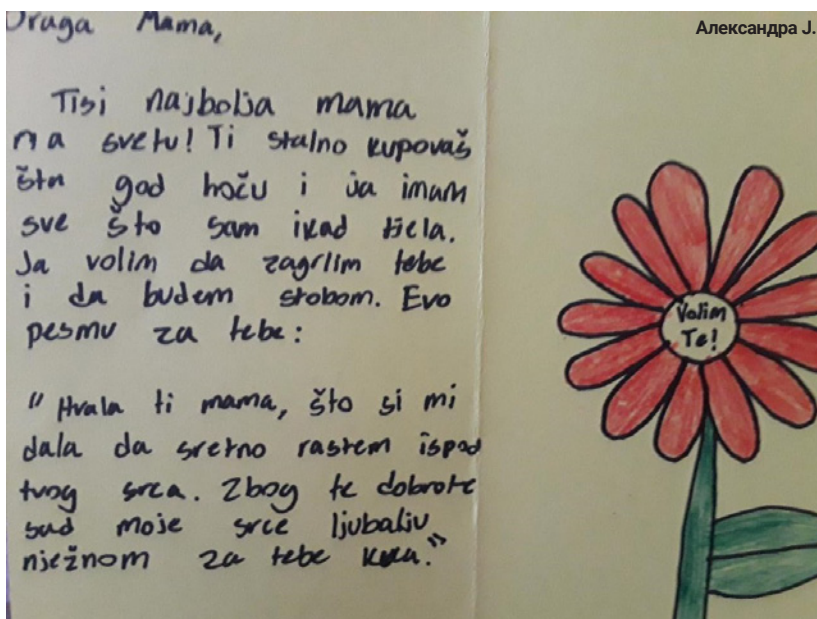 Draga Mama,
Александра Ј.
Tisi najbolja mama
na svetu! Ti stalno kupovaš
štn god hoču i ja imam
sve što sam ikad
Ja volim da zagrlim tebe
i da budem stobom. Evo
pesmu za tebe:
"Hvala ti mama, što si mi
dala da sretno rastem ispod
tvog srca. Zbog te dobrote
sad moje srce ljubaliu
nježnom za tebe
Volim
Te!